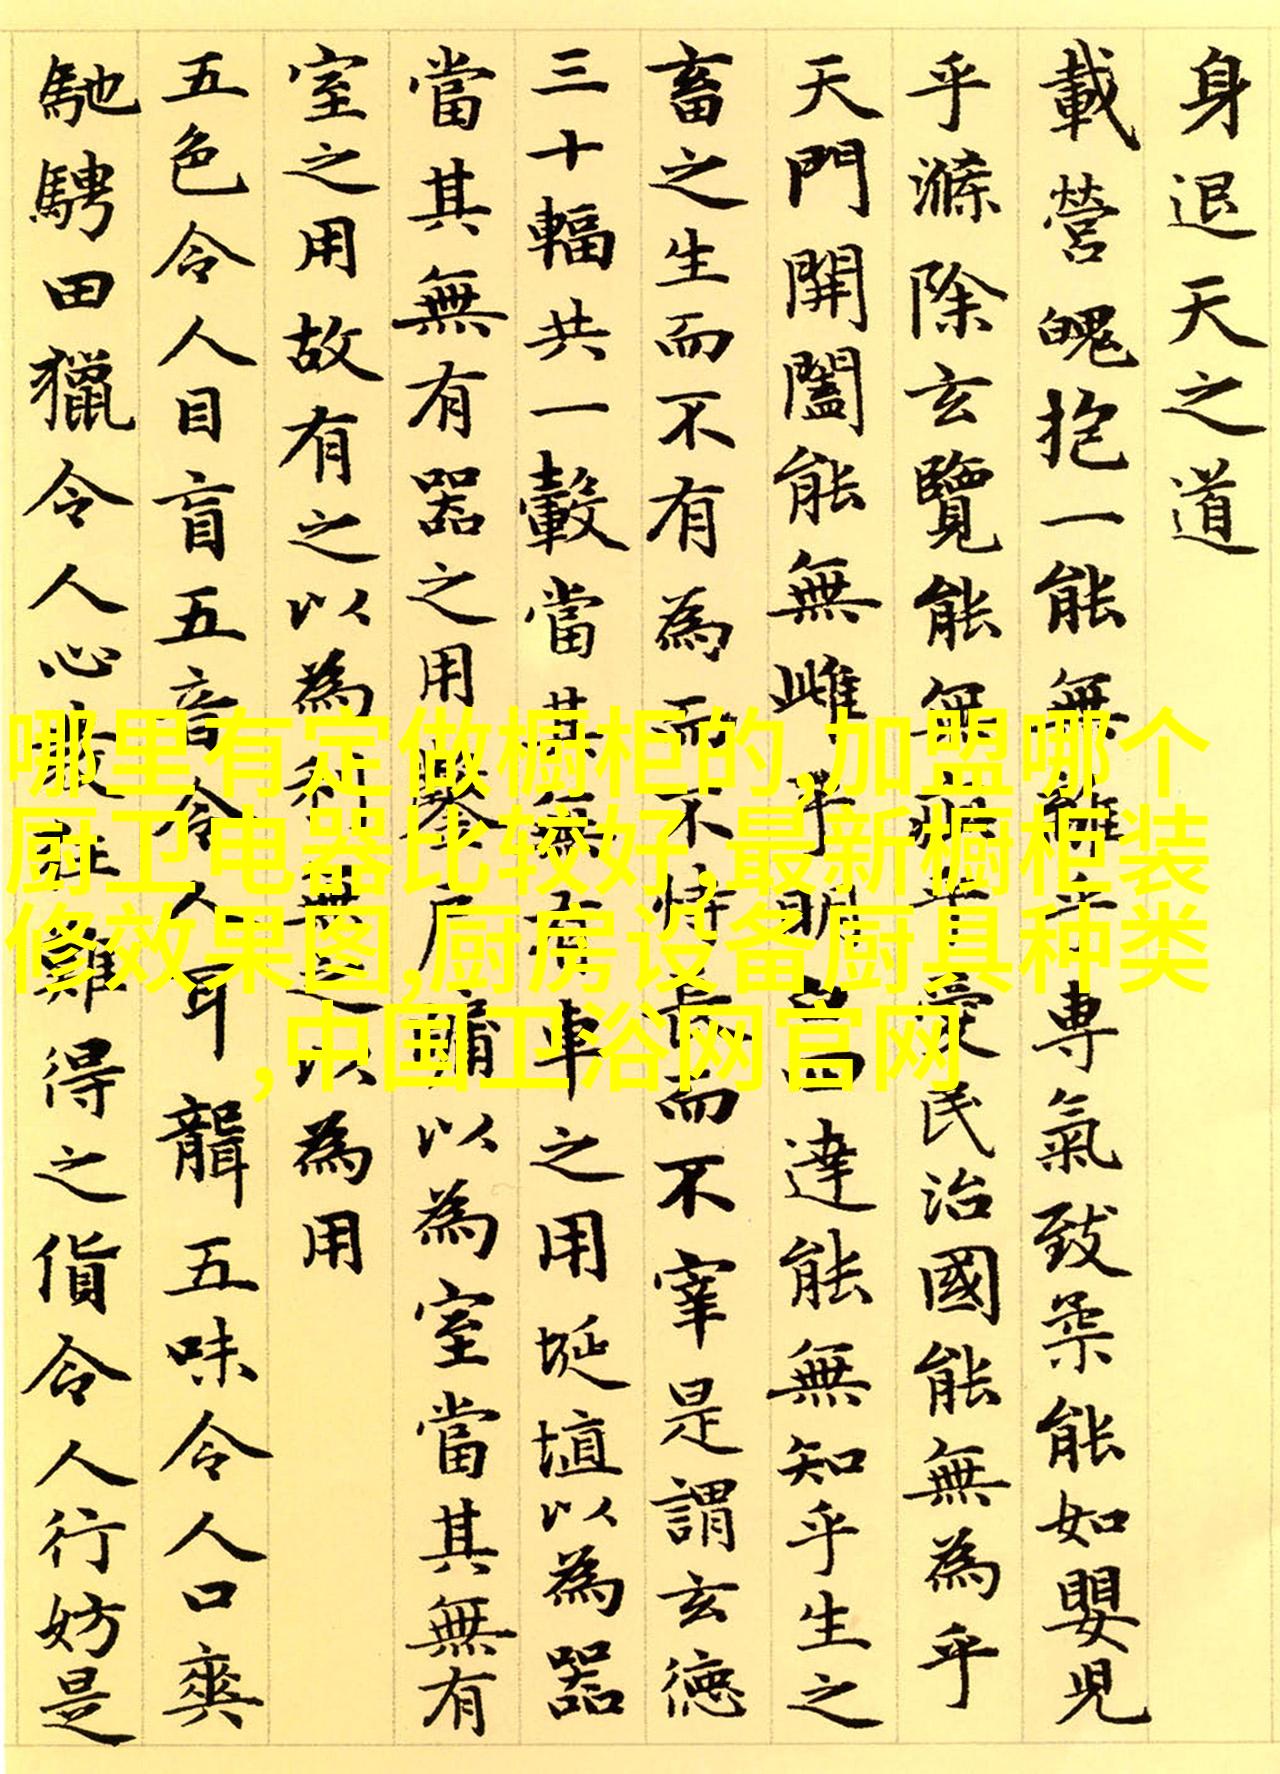 身退天之道
載營魄抱一能無離乎專氣致柔能如嬰兒
乎滌除玄覽能無疵乎愛民治國能無為乎
天門開闔能無雌乎明白四達能無知乎生之
畜之生而不有為而不恃長而不宰是謂玄德
三十輻共一轂當其無有車之用埏埴以為器
當其無有器之用鑿戶牖以為室當其無有
室之用故有之以為利無之以為用
五色令人目盲五音令人耳聾五味令人口爽
馳騁田獵令人心發狂難得之貨令人行妨是
哪里有定做橱柜的,加盟哪个
厨卫电器比较好,最新橱柜装
修效果图,厨房设备厨具种类
,中国卫浴网官网